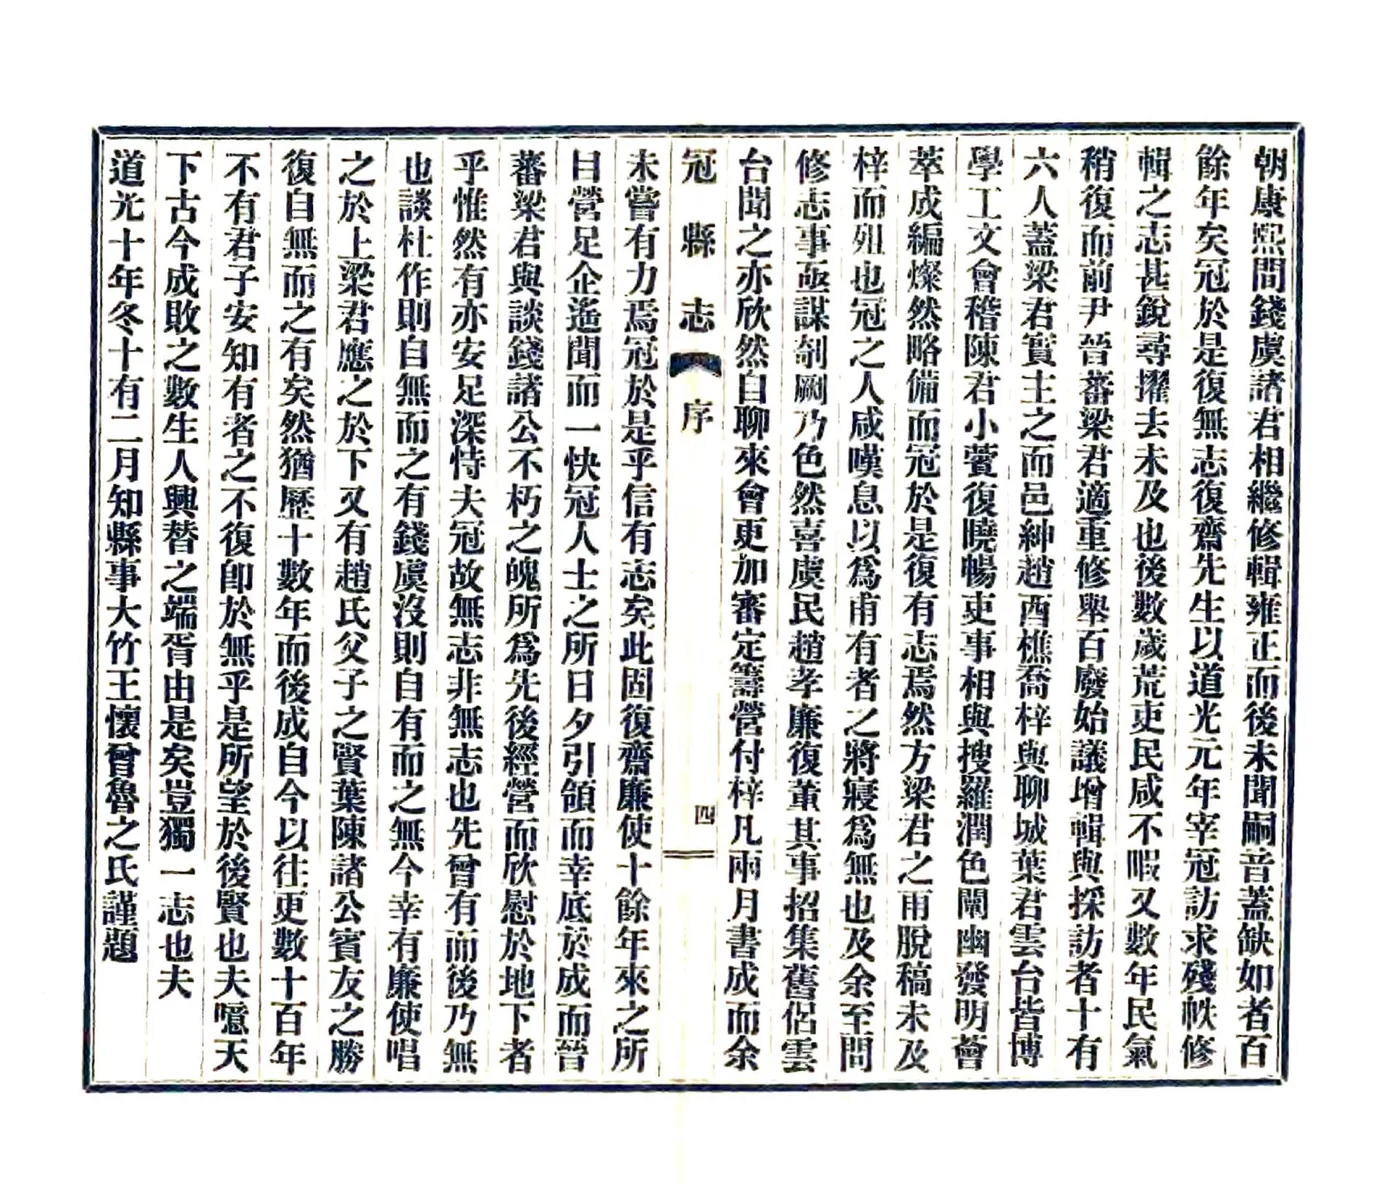 朝康熙間錢虞諸君相繼修輯雍正而後未聞嗣音蓋缺如者百
餘年矣冠於是復無志復齋先生以道光元年宰冠訪求殘帙修
輯之志甚銳尋擢去未及也後數歲荒吏民咸不暇又數年民氣
稍復而前尹晉蕃梁君適重修舉百廢始議增輯與採訪者十有
六人蓋梁君實主之而邑紳趙酉樵喬梓與聊城葉君雲台皆博
學工文會稽陳君小蘐復曉暢吏事相與搜羅潤色闡幽發明薈
萃成編燦然略備而冠於是復有志焉然方梁君之甫脫稿未及
梓而歿也冠之人咸嘆息以為甫有者之將寢為無也及余至問
修志事亟謀剞劂乃色然喜虞民趙孝廉復董其事招集舊侶雲
台聞之亦欣然自聊來會更加審定籌營付梓凡兩月書成而余
冠縣志 序 四
未嘗有力焉冠於是乎信有志矣此固復齋廉使十餘年來之所
目營足企遙聞而一快冠人士之所日夕引領而幸底於成而晉
蕃梁君與談錢諸公不朽之魄所為先後經營而欣慰於地下者
乎惟然有亦安足深恃夫冠故無志非無志也先曾有而後乃無
也談杜作則自無而之有錢虞沒則自有而之無今幸有廉使唱
之於上梁君應之於下又有趙氏父子之賢葉陳諸公賓友之勝
復自無而之有矣然猶歷十數年而後成自今以往更數十百年
不有君子安知有者之不復即於無乎是所望於後賢也夫噫天
下古今成敗之數生人興替之端胥由是矣豈獨一志也夫
道光十年冬十有二月知縣事大竹王懷曾魯之氏謹題